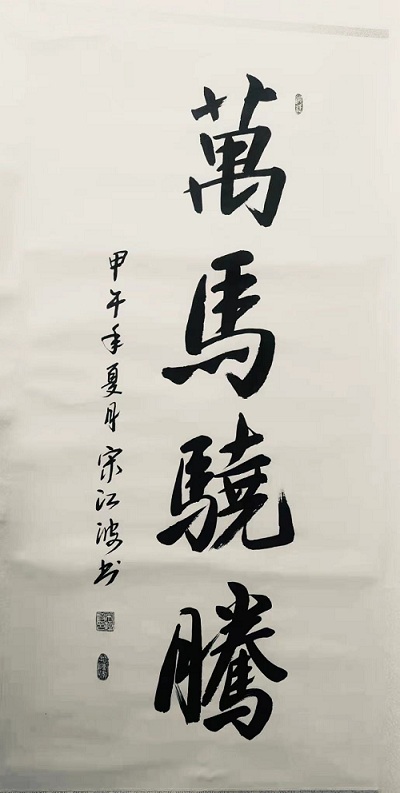 萬馬驍騰
甲午年夏月宋江波书